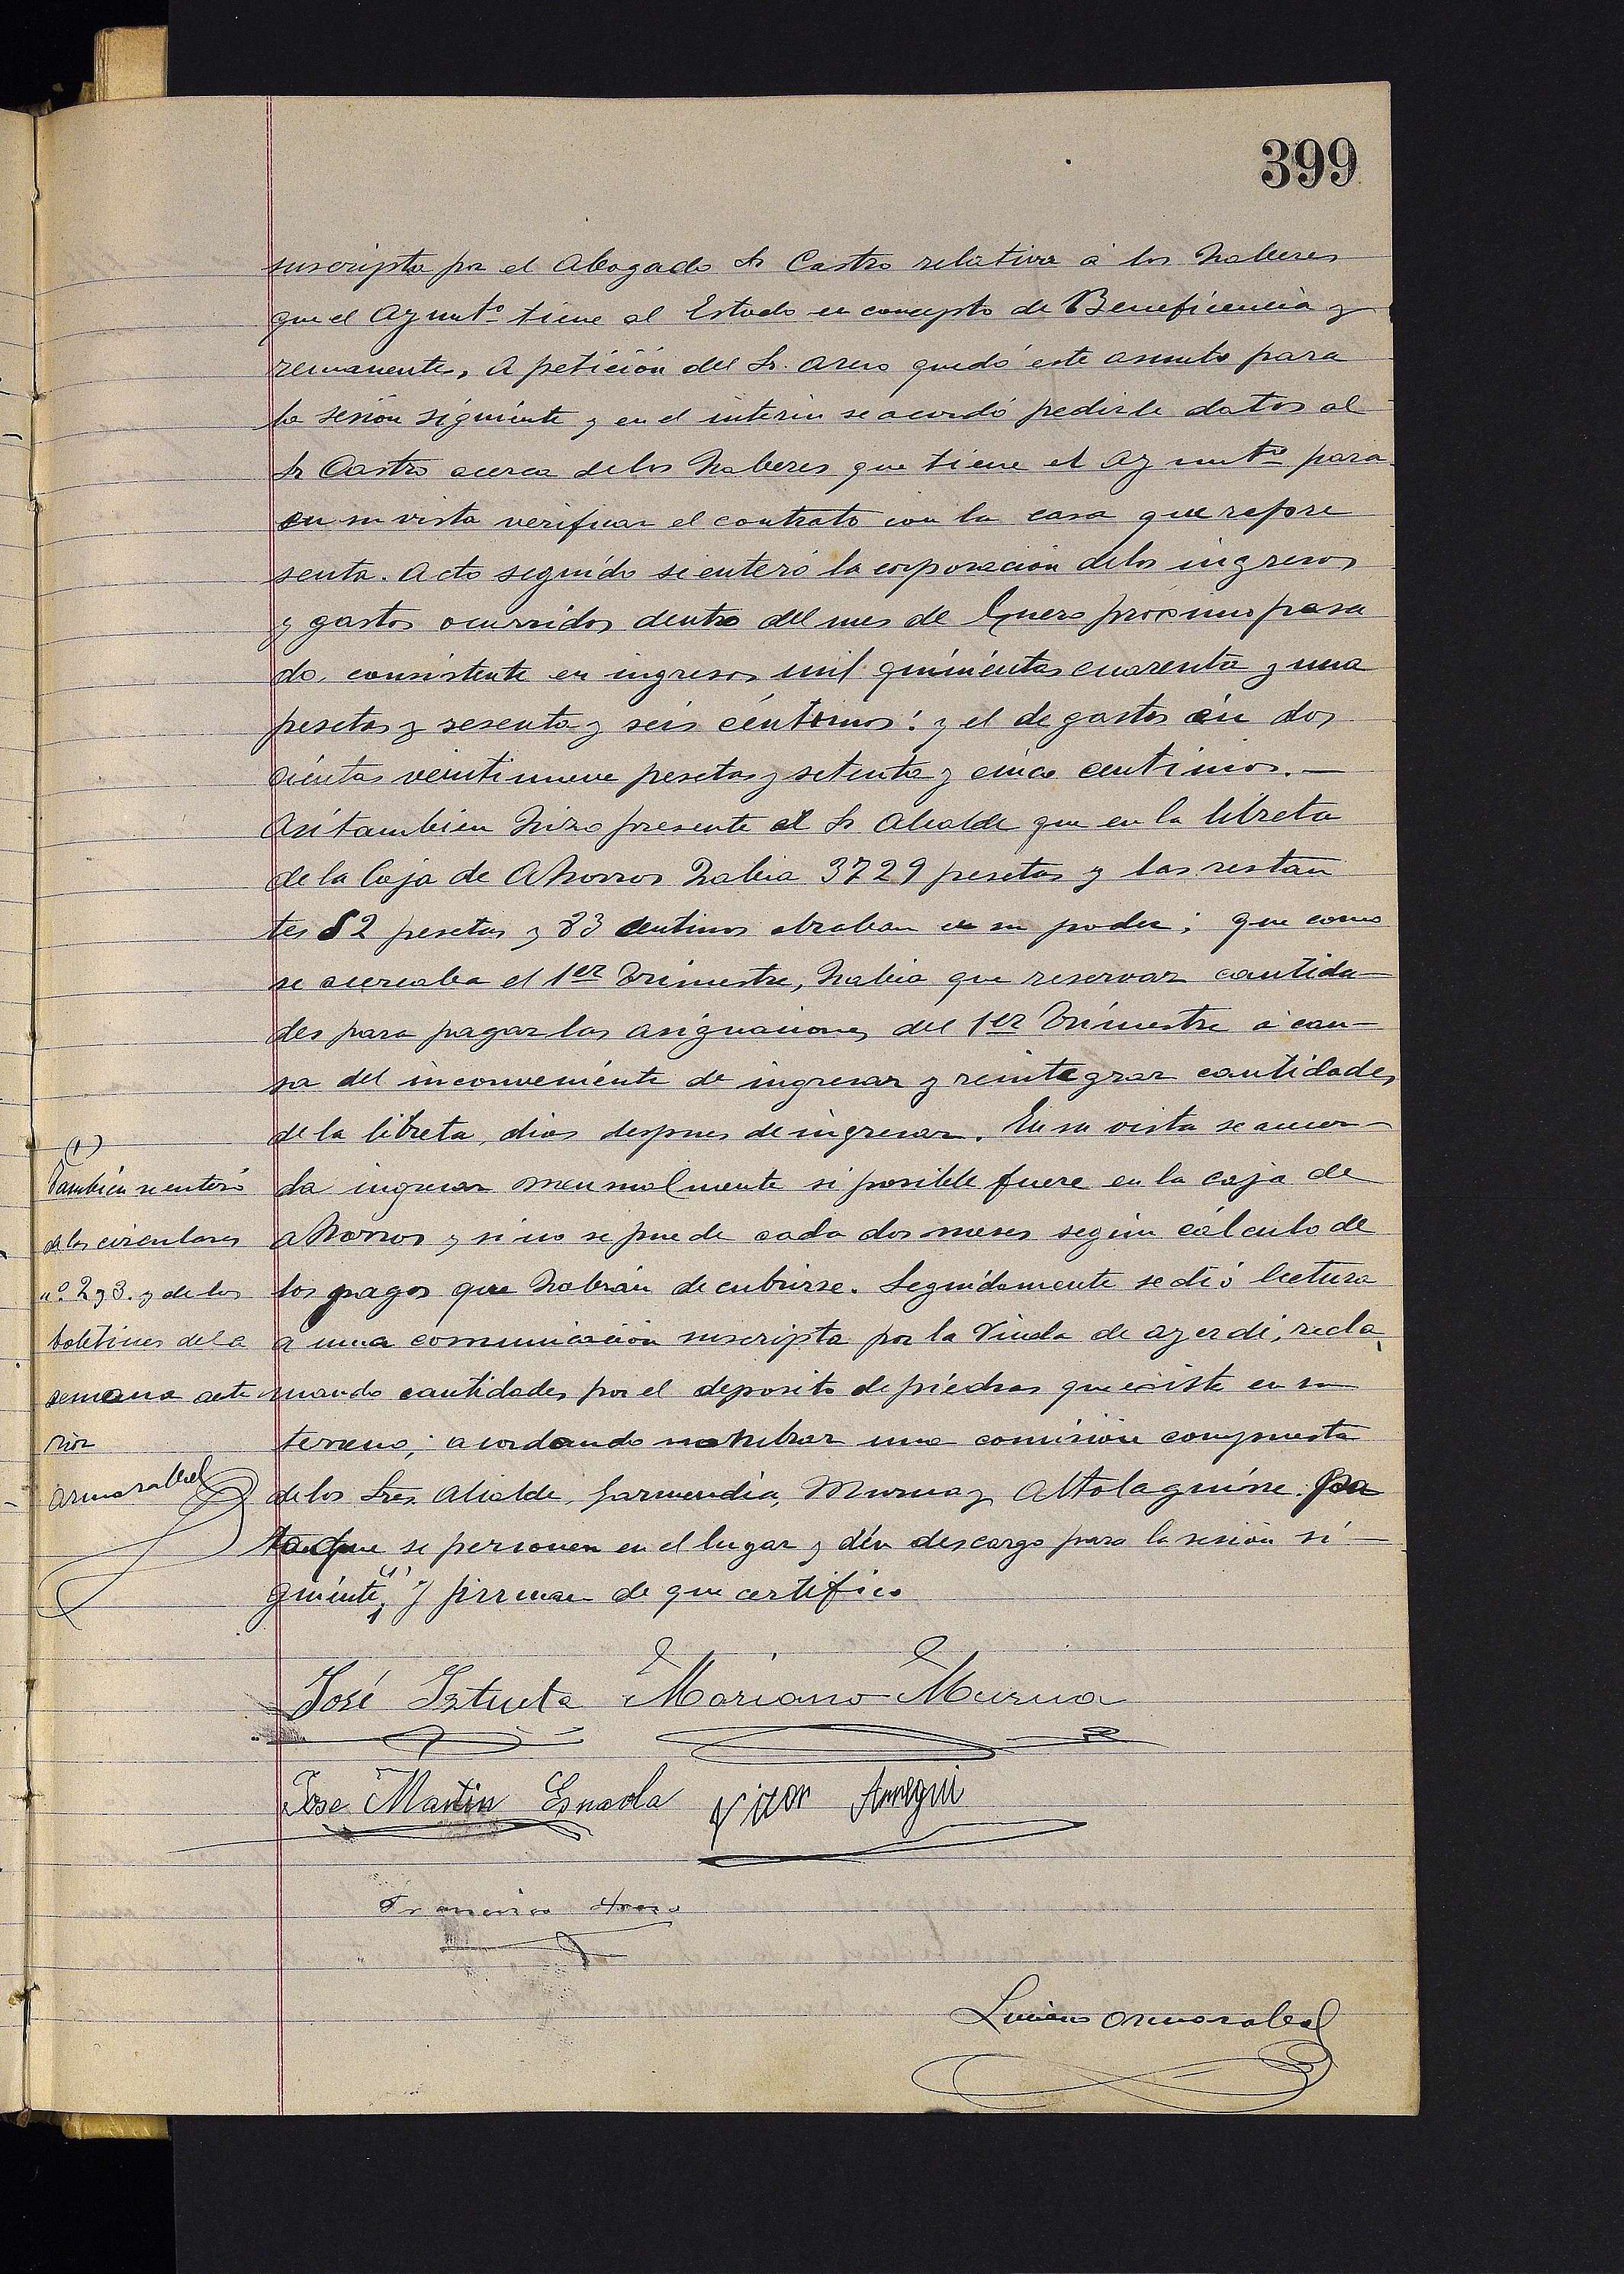 399
suscripta por el Abogado Sr Castro relativa á los haberes
que el Ayuntº tiene al Estado en concepto de Beneficencia y
remanente. A petición del Sr. Areso quedó este asunto para
la sesión siguiente y en el interin se acordó pedirle datos al
Sr Castro acerca de los haberes que tiene el Ayuntº para
en su vista verificar el contrato con la casa que repre
senta. Acto seguido se enteró la corporación de los ingresos
y gastos ocurridos dentro del mes de Enero próximo pasa
do, consistente en ingresos mil quinientas cuarenta y una
pesetas y sesenta y seis céntimos: y el de gastos en dos
cientas veintinueve pesetas y setenta y cinco centimos.—
Asi tambien hizo presente el Sr Alcalde que en la libreta
de la Caja de Ahorros habia 3729 pesetas y las restan
tes 82 pesetas y 83 centimos obraban en su poder; que como
se acercaba el 1er Trimestre, habia que reservar cantida-
des para pagar las asignaciones del 1er Trimestre á cau-
sa del inconveniente de ingresar y reintegrar cantidades
de la libreta, dias despues de ingresar. En su vista se acuer-
da ingresar mensualmente si posible fuere en la caja de
ahorros y si no se puede cada dos meses según cálculo de
los pagos que habrán de cubrirse. Seguidamente se dió lectura
a una comunicación suscripta por la Viuda de Ayerdi, recla
mando cantidades por el deposito de piedras que existe en su
terreno; acordando nombrar una comisión compuesta
de los Sres. Alcalde, Garmendia, Murua y Altolaguirre
que se personen en el lugar y dén descargo para la sesión si-
guiente, (1) Y firman de que certifico
(1)
También se enteró
de las circulares
nº. 2 y 3. y de los
boletines de la
semana ante
rior
Armorabal
José Iztueta Mariano Murua
Jose Martin Esnaola Victor Arregui
Francisco Areso
Luciano Armorabal